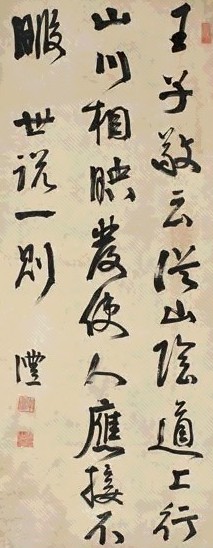 王子敬云從山陰道上行
山川相映發使人應接不
暇 世說一則 灃